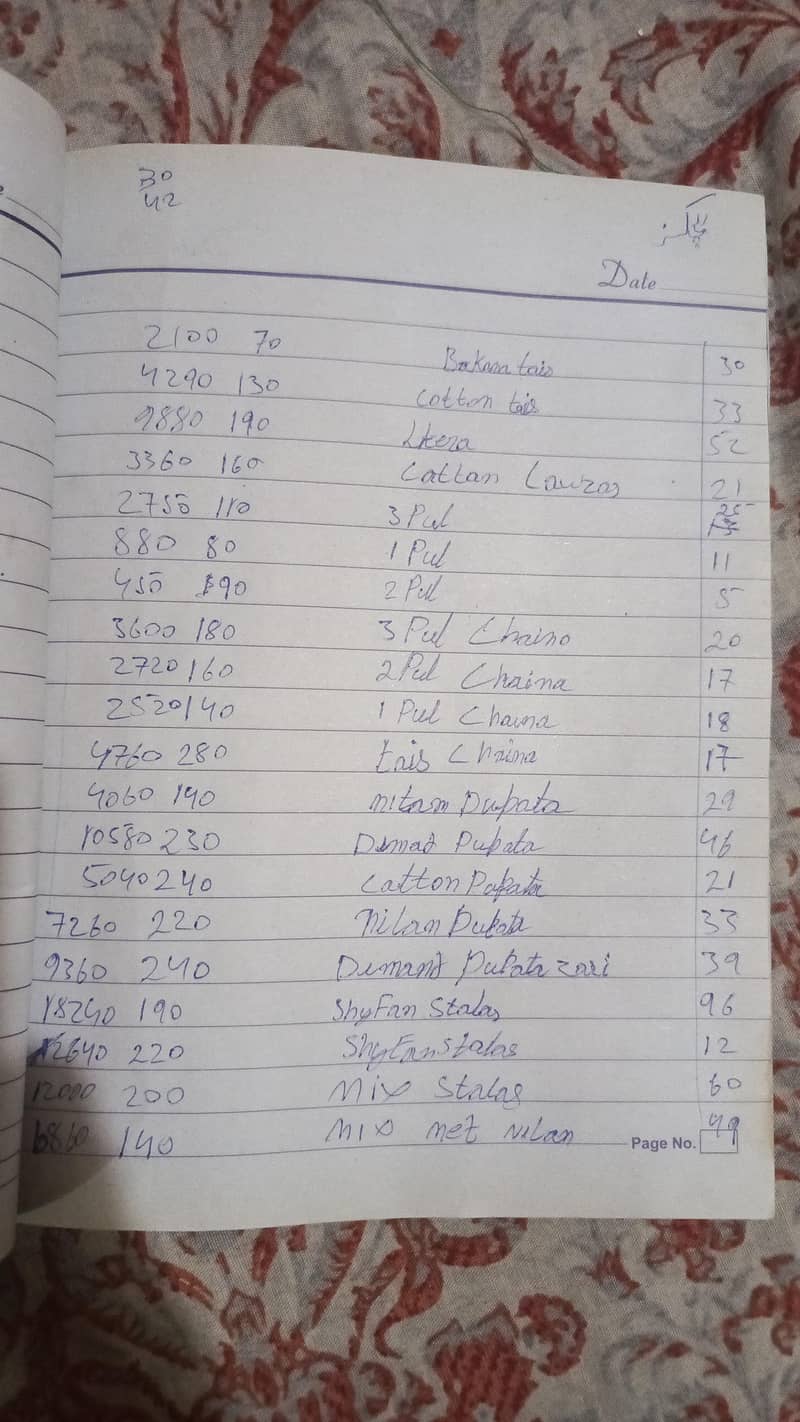 30
42
Date
2100 70 Bokram tais 30
4290 130 Cotton tais 33
9880 190 Lkera 52
3360 160 Cattan Lawzas 21
2750 110 3 Pul 25
880 80 1 Pul 11
450 90 2 Pul 5
3600 180 3 Pul Chaino 20
2720 160 2 Pul Chaina 17
2520 140 1 Pul Chaina 18
4760 280 tais Chaina 17
4060 140 Dupata 29
10580 230 Dimad Pupata 46
5040 240 Catton Papata 21
7260 220 Nilan Dupata 33
9360 240 Dimand Pupata zari 39
18240 190 ShyFan Stalas 96
2640 220 ShyFan Stalas 12
12000 200 Mix Stalas 60
6860 140 Mix net Nilan 49
Page No.